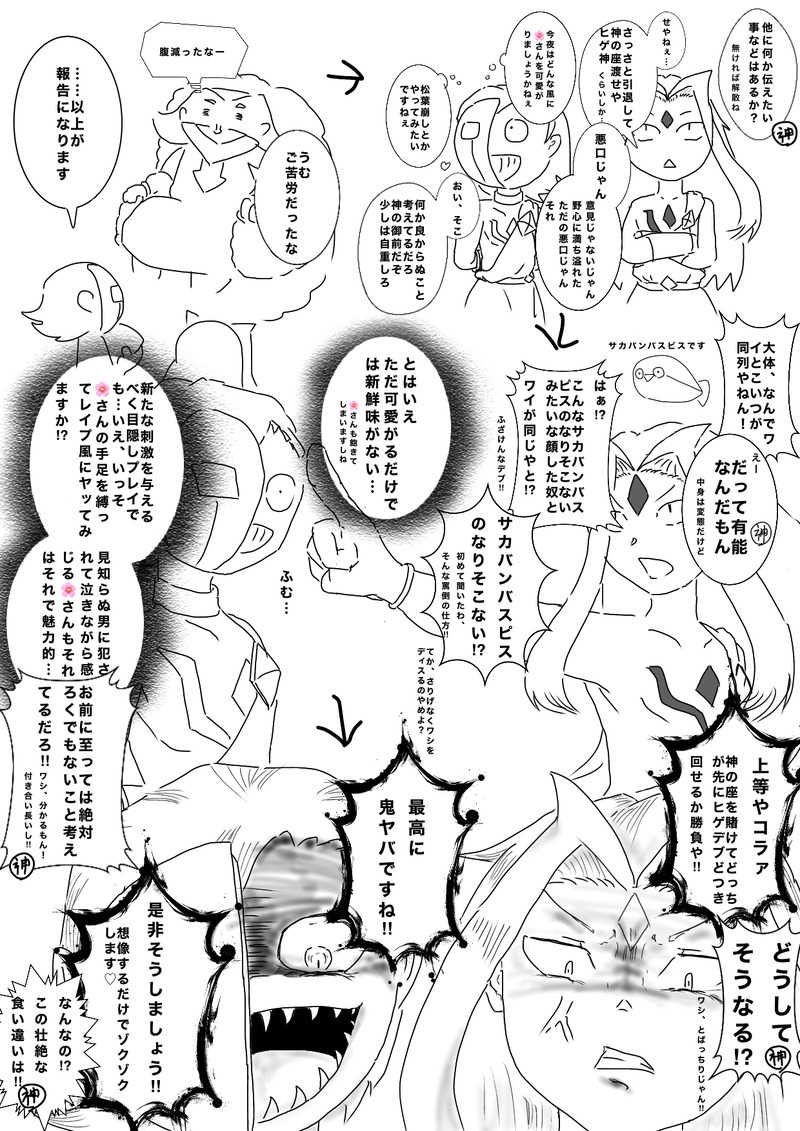 ……以上が
報告になります
腹減ったなー
うむ
ご苦労だったな
他に何か伝えたい
事などはあるか?
無ければ解散ね
神
せやねぇ…
さっさと引退して
神の座渡せや
ヒゲ神 くらいしか…
悪口じゃん
意見じゃないじゃん
野心に満ち溢れた
ただの悪口じゃん
それ
今夜はどんな風に
🌸さんを可愛が
りましょうかねぇ
松葉崩しとか
やってみたい
ですねぇ
おい、そこ
何か良からぬこと
考えてるだろ
神の御前だぞ
少しは自重しろ
大体、なんでワ
イとこいつが
同列やねん!
えー
だって有能
なんだもん
中身は変態だけど
神
サカバンバスピスです
はぁ!?
こんなサカバンバス
ピスのなりそこない
みたいな顔した奴と
ワイが同じやと!?
ふざけんなデブ!!
サカバンバスピス
のなりそこない!?
初めて聞いたわ、
そんな罵倒の仕方!!
てか、さりげなくワシを
ディスるのやめよ?
とはいえ
ただ可愛がるだけで
は新鮮味がない…
🌸さんも飽きて
しまいますしね
ふむ…
新たな刺激を与える
べく目隠しプレイで
も…いえ、いっそ
🌸さんの手足を縛っ
てレイプ風にヤッてみ
ますか!?
見知らぬ男に犯さ
れて泣きながら感
じる🌸さんもそれ
はそれで魅力的…
お前に至っては絶対
ろくでもないこと考え
てるだろ!!
ワシ、分かるもん!
付き合い長いし!!
神
上等やコラァ
神の座を賭けてどっち
が先にヒゲデブどつき
回せるか勝負や!!
どうして
そうなる!?
神
ワシ、とばっちりじゃん!!
最高に
鬼ヤバですね!!
是非そうしましょう!!
想像するだけでゾクゾク
します♡
なんなの!?
この壮絶な
食い違いは!!
神